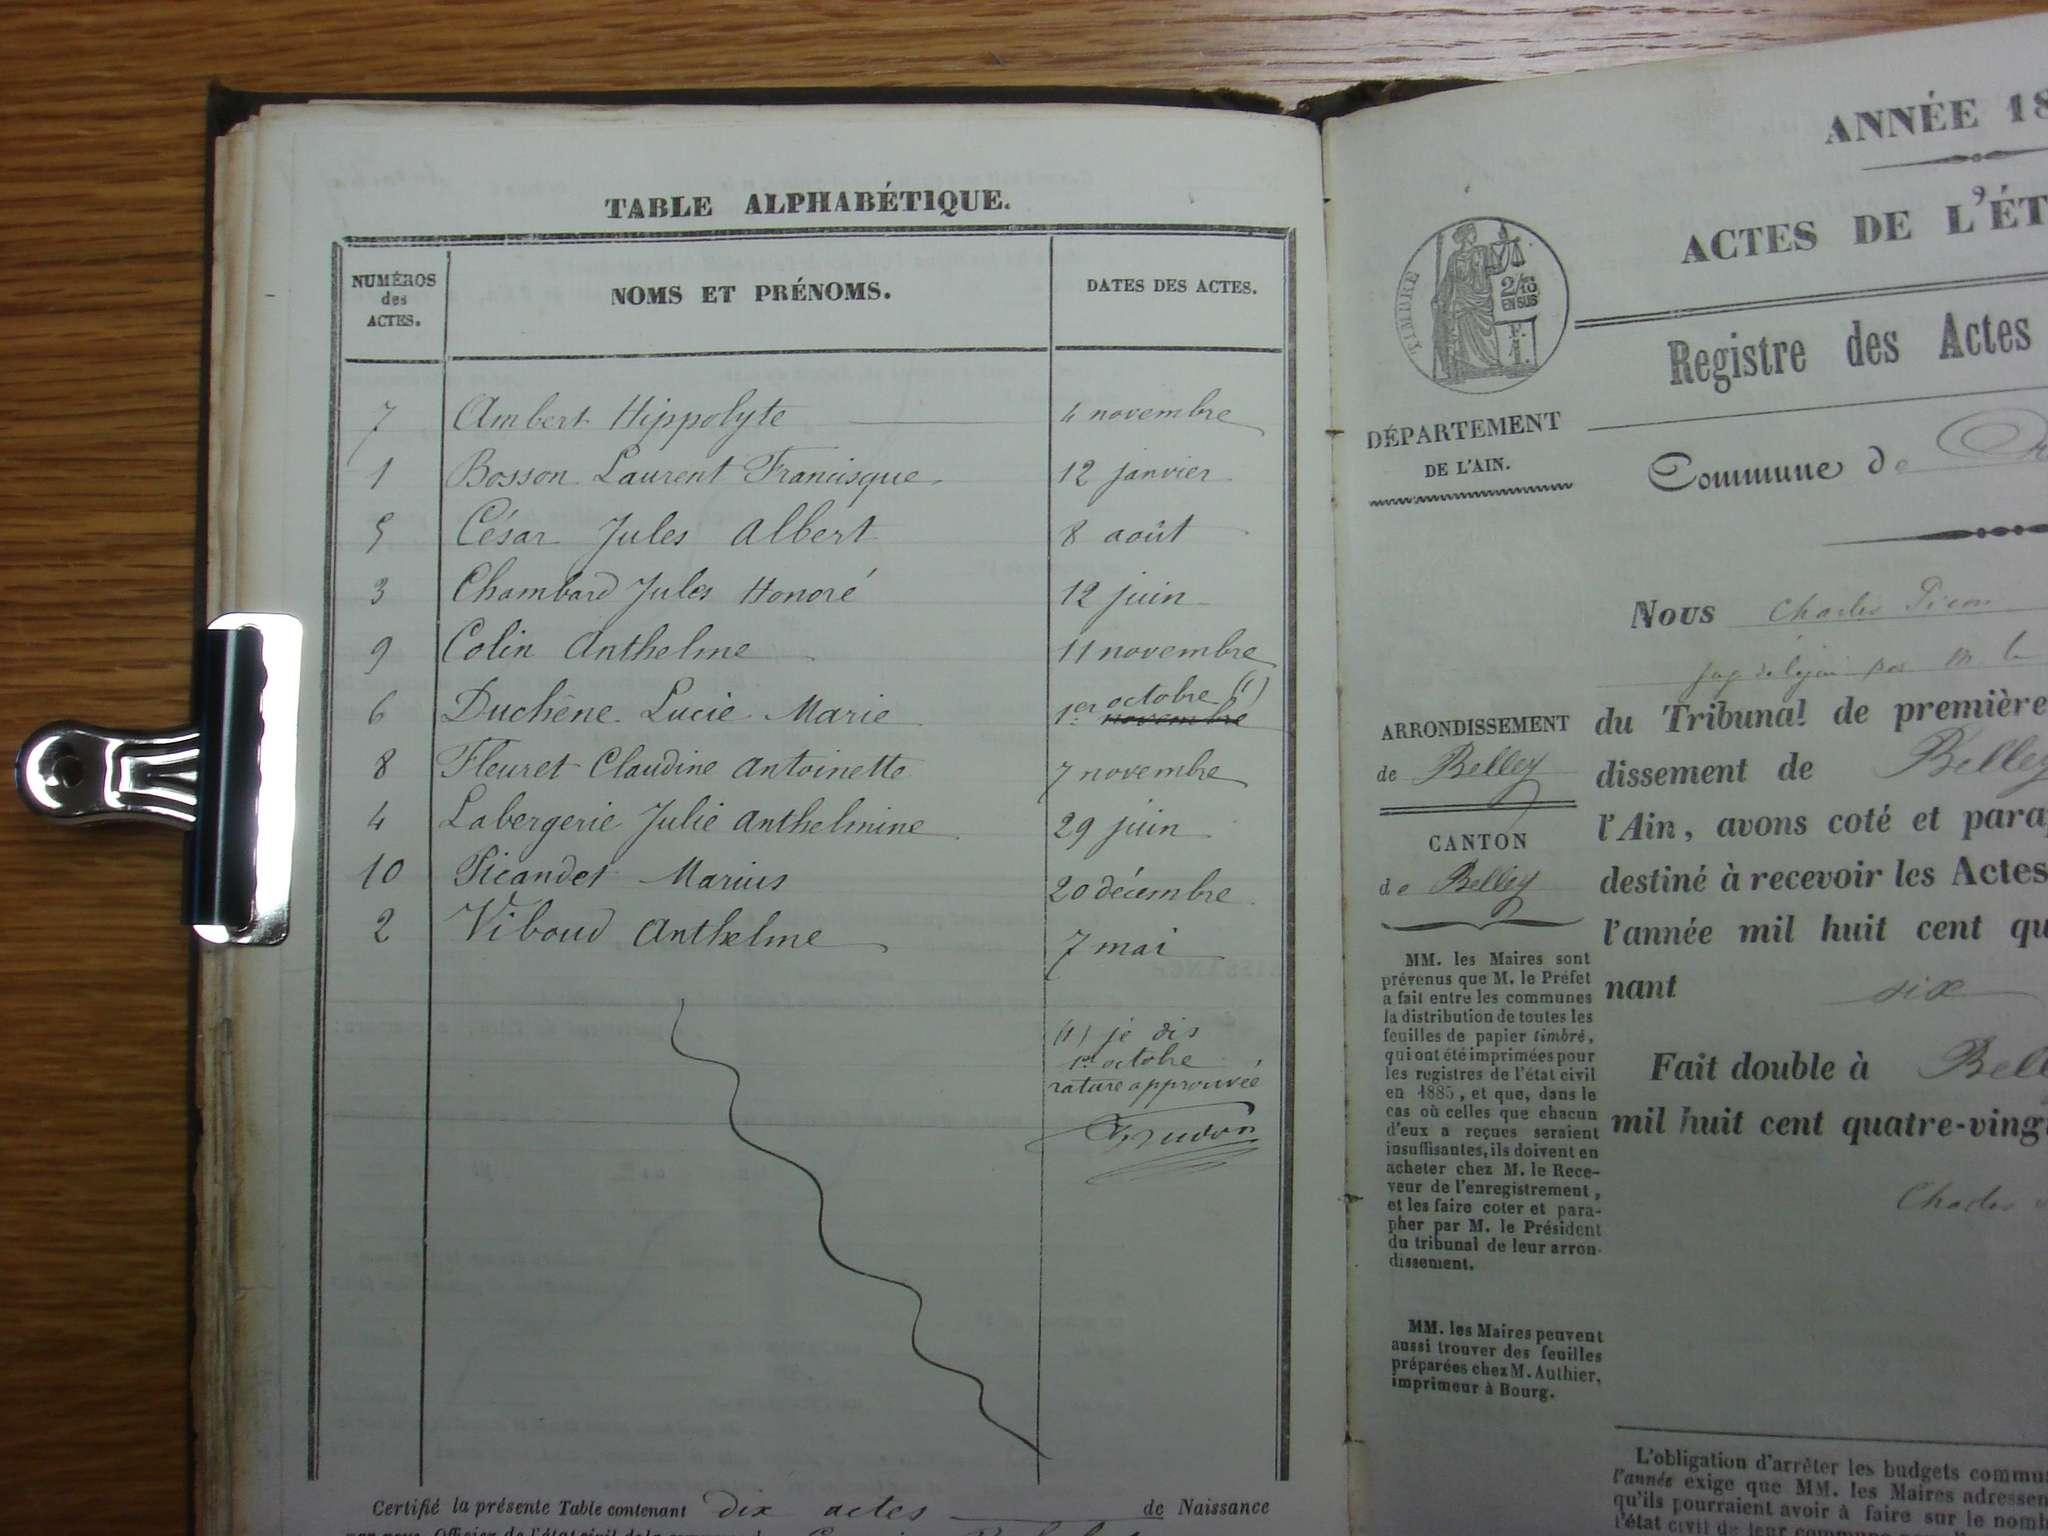 TABLE ALPHABÉTIQUE.
NUMÉROS des ACTES. NOMS ET PRÉNOMS. DATES DES ACTES.
7 Ambert Hippolyte 4 novembre
1 Bosson Laurent Francisque 12 janvier
5 César Jules Albert 8 août
3 Chambard Jules Honoré 12 juin
9 Colin Anthelme 11 novembre
6 Duchêne Lucie Marie 1er octobre (1) novembre
8 Fleuret Claudine Antoinette 7 novembre
4 Labergerie Julie Anthelmine 29 juin
10 Picandet Marius 20 décembre
2 Viboud Anthelme 7 mai
(1) je dis
1er octobre
rature approuvée
Certifié la présente Table contenant dix actes de Naissance
ANNÉE 18
ACTES DE L'ÉT
TIMBRE
2/10
EN SUS
F.
1.
Registre des Actes
DÉPARTEMENT
DE L'AIN.
Commune de
ARRONDISSEMENT
de Belley
CANTON
de Belley
MM. les Maires sont
prévenus que M. le Préfet
a fait entre les communes
la distribution de toutes les
feuilles de papier timbré,
qui ont été imprimées pour
les registres de l'état civil
en 1885, et que, dans le
cas où celles que chacun
d'eux a reçues seraient
insuffisantes, ils doivent en
acheter chez M. le Rece-
veur de l'enregistrement,
et les faire coter et para-
pher par M. le Président
du tribunal de leur arron-
dissement.
MM. les Maires peuvent
aussi trouver des feuilles
préparées chez M. Authier,
imprimeur à Bourg.
Nous Charles
du Tribunal de première
dissement de Belley
l'Ain, avons coté et para
destiné à recevoir les Actes
l'année mil huit cent qu
nant six
Fait double à Bell
mil huit cent quatre-ving
Charles
L'obligation d'arrêter les budgets commu
l'année exige que MM. les Maires adressen
qu'ils pourraient avoir à faire sur le nomb
l'état civil de leur commun